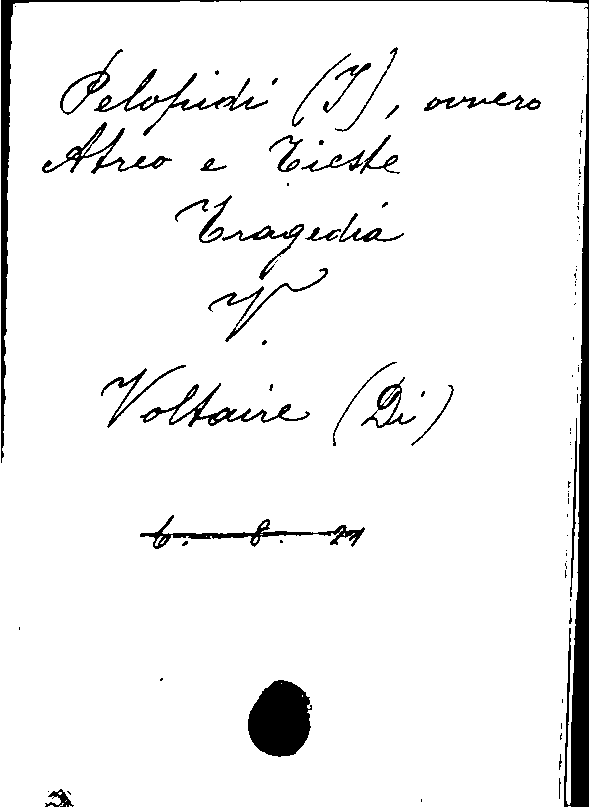 Pelopidi (I), ovvero
Atreo e Tieste
Tragedia
V.
Voltaire (Di)
6. 8. 21